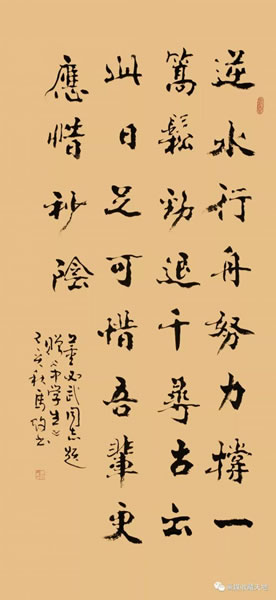 逆水行舟努力撐一
篙鬆勁退千尋古云
此日足可惜吾輩更
應惜秒陰
董必武同志題
贈《中学生》
己亥秋馬书